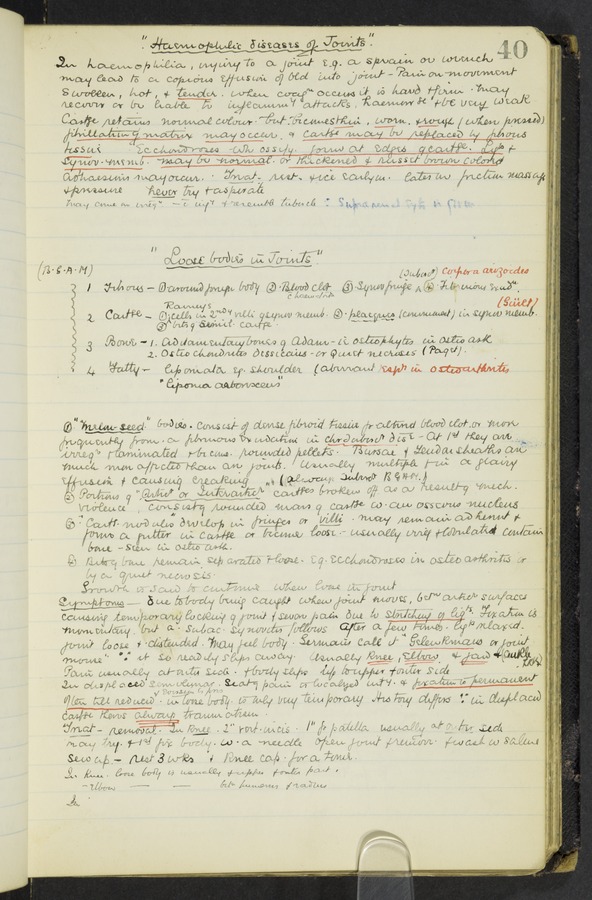 40
"Haemophilic diseases of Joints".
In haemophilia, injury to a joint e.g. a sprain or wrench
may lead to a copious effusion of bld into joint - Pain on movement
Swollen, hot, & tender. When coagn occurs it is hard & firm. May
recover or be liable to inflammy attacks, haemorr & be very weak
Cartge retains normal colour but becomes thin, worn, & rough (when pressed)
fibrillating matrix may occur, & cartge may be replaced by fibrous
tissue Ecchondroses wh ossify, form at edges of cartge. Ligs &
Synov. memb. may be normal or thickened & russet brown colored
Adhaesions may occur. Treat. rest & ice early on. Later on friction massage
& pressure never try & aspirate
"Loose bodies in Joints"
(B.G.A.M)
(Subact) Corpora aryzoidea
1 Fibrous - ① around foreign body ② Blood clot ③ Synov fringe ④ Fibrinous exudn.
2 Cartge - ① cells in 2ndy villi of synov memb. ② plaques in synov memb.
③ bits of semil. cartge.
3 Bone - 1. Addamentary bones of Adams - in osteophytes in osteo arth
2. Osteochondritis dissecans - or Quiet necrosis (Paget).
4 Fatty - lipomata eg. shoulder (aberrant esply in osteoarthritis
"Lipoma arborescens"
① "Melon-seed" bodies. Consist of dense fibroid tissue fr altered blood clot, or more
frequently from a fibrinous exudation in chr. subact dise - At 1st they are
irreg & laminated & become rounded pellets. Bursae & tendon sheaths are
much more affected than are joints. Usually multiple & in a glairy
effusion & causing creaking
② Portions of "Artic or Interartic" cartges broken off as a result of mech.
violence, consistg rounded mass of cartge w. an osseous nucleus
③ "Cartl. nodules" develop in fringes or villi. may remain adherent &
form a gutter in cartge or become loose - usually irreg & lobulated contain
bone - seen in osteo arth.
④ Bits of bone remain separated & loose. Eg. Ecchondroses in osteo arthritis or
by a quiet necrosis.
Growth is said to continue when loose in joint
Symptoms - due to body being caught when joint moves, betn artic surfaces
causing temporary locking of joint & severe pain due to stretching of ligts. Fixation is
momentary, but a subac. synovitis follows After a few times ligts relaxed.
joint loose & distended. May feel body. Germans call it "Gelenkmaus or joint
mouse" ∵ it so readily slips away Usually knee, Elbow & jaw & ankle
Pain usually at outer side & body slips up to upper & outer side
In displaced semilunar. Seat of pain is localized inty. & fixation is permanent
often till reduced. in loose body is only very temporary History differs ∵ in displaced
cartge there always traumatism.
Treat - removal. In knee. 2" vert. incis. 1" fr patella usually at outer side
may try & 1st fix body w. a needle open joint & remove. & wash w saline
Sew up - rest 3 wks & knee cap for a time.
In knee loose body is usually & upper & outer part.
- Elbow - - betn humerus & radius
In